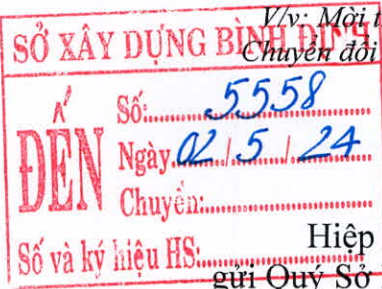 V/v: Mời t
Chuyển đổi
SỞ XÂY DỰNG BÌNH ĐỊNH
ĐẾN
Số: 5558
Ngày 02/5/24
Chuyển:
Số và ký hiệu HS:
Hiệp
gửi Quý Sở